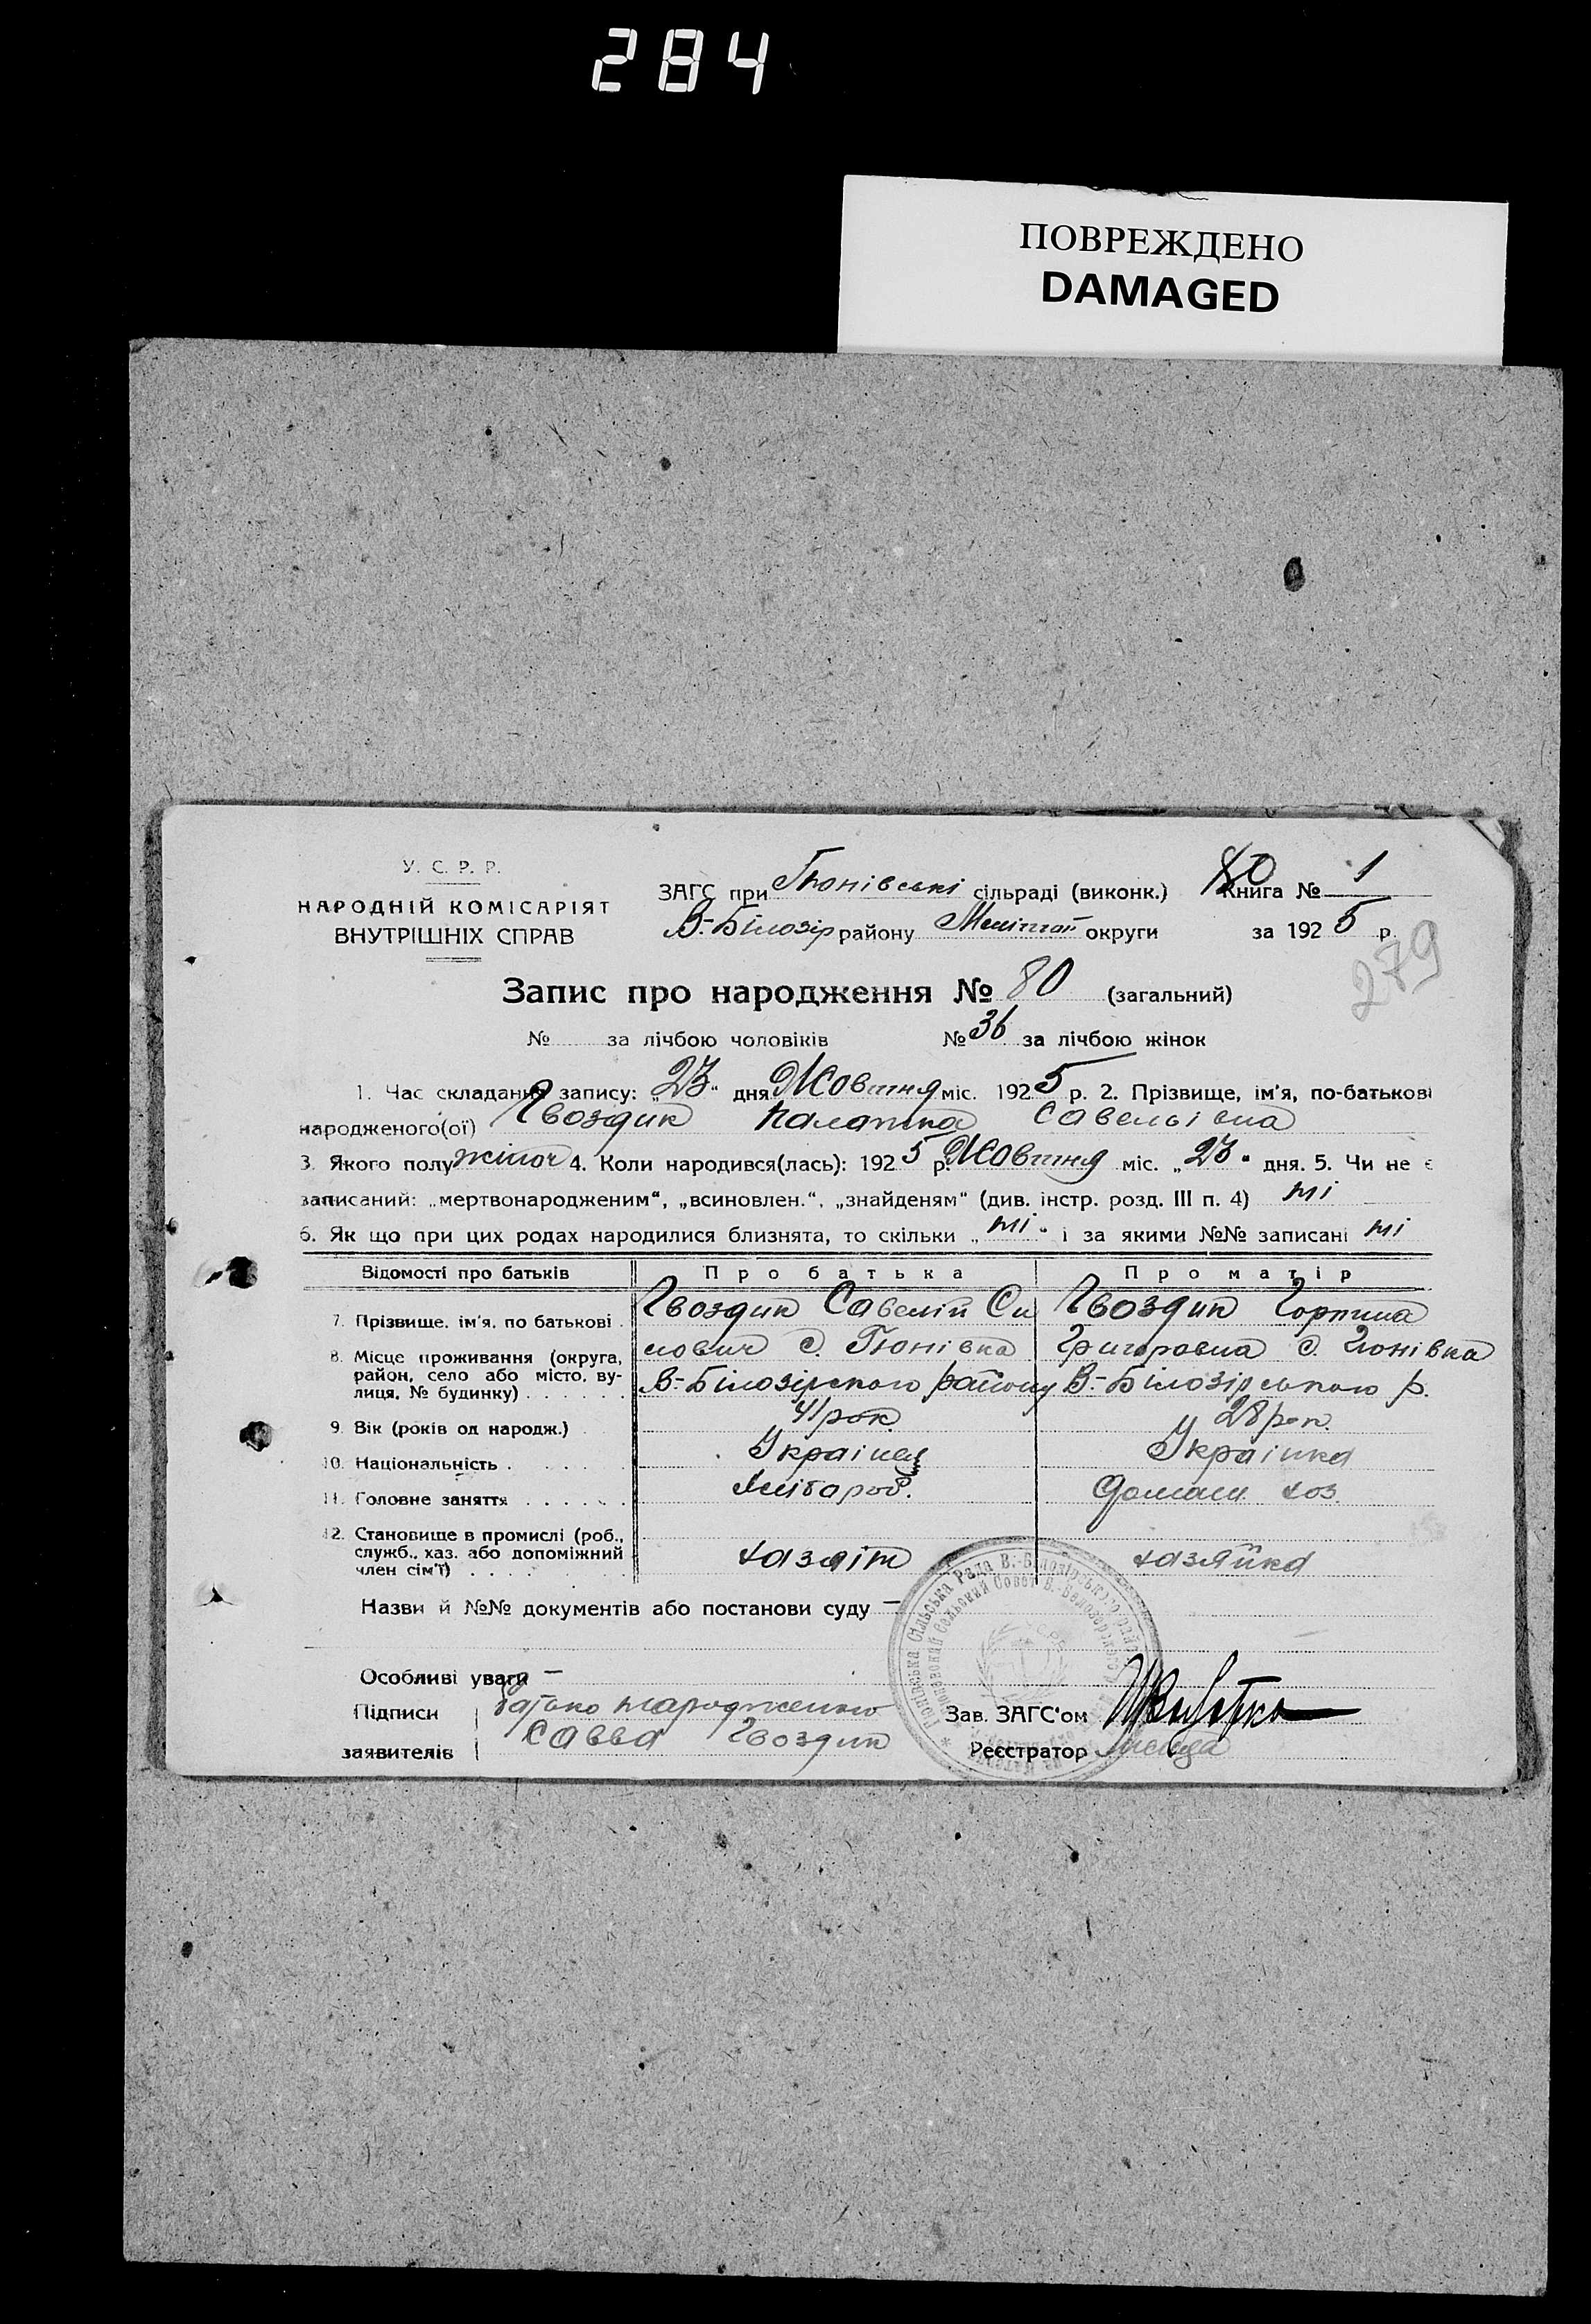 284
ПОВРЕЖДЕНО
DAMAGED
У. С. Р. Р.
НАРОДНІЙ КОМІСАРІЯТ
ВНУТРІШНІХ СПРАВ
ЗАГС при Гюнівські сільраді (виконк.) Книга № 1
В.-Білозір району Меліт округи за 1925 р.
279
Запис про народження № 80 (загальний)
№ за лічбою чоловіків № 36 за лічбою жінок
1. Час складання запису: „23“ дня Жовтня міс. 1925 р. 2. Прізвище, ім'я, по-батькові
народженого(ої) Гвоздик Палапка Савельівна
3. Якого полу жіноч 4. Коли народився(лась): 1925 р. Жовтня міс. „23“ дня. 5. Чи не є
записаний: „мертвонародженим“, „всиновлен.“, „знайденям“ (див. інстр. розд. III п. 4) ні
6. Як що при цих родах народилися близнята, то скільки „ні“ і за якими №№ записані ні
Відомості про батьків Про батька Про матір
7. Прізвище, ім'я, по батькові Гвоздик Савелій Си Гвоздик Горпина
8. Місце проживання (округа, лович с. Гюнівка Григоровна с. Гюнівка
район, село або місто, ву-
лиця, № будинку) В.-Білозірского району В.-Білозірського р.
9. Вік (років од народж.) 41 рок 28 рок.
10. Національність Українец Українка
11. Головне заняття Хлібороб. Домаш хоз.
12. Становище в промислі (роб.,
служб., хаз. або допоміжний хазяін хазяйка
член сім'ї)
Назви й №№ документів або постанови суду —
Особливі уваги —
Підписи Батько народженого
заявителів Савва Гвоздик
Зав. ЗАГС'ом
Реєстратор Лисиця